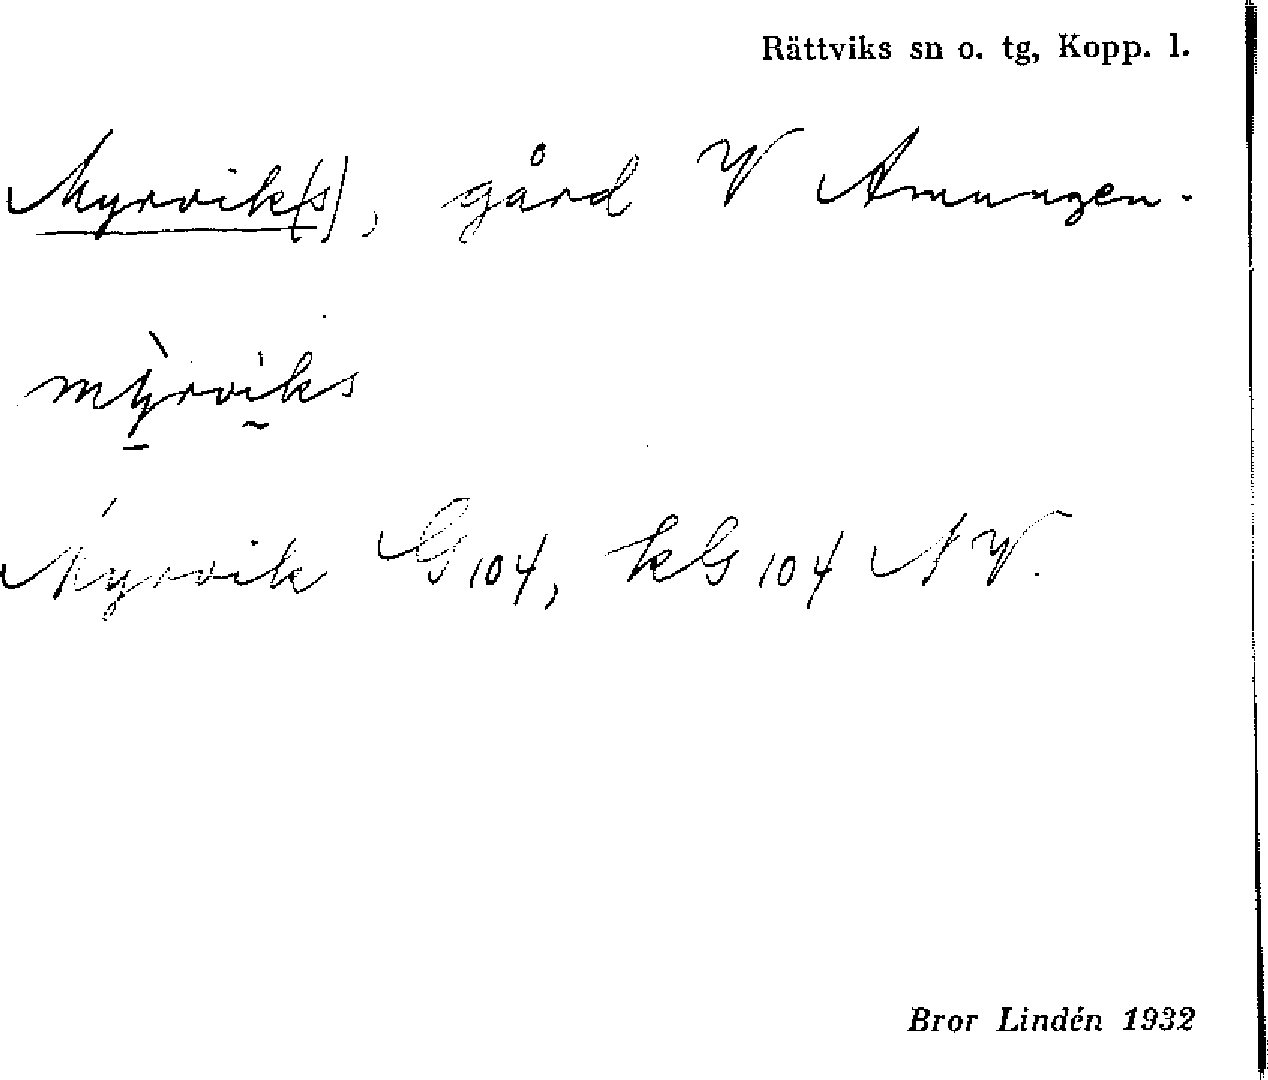 Rättviks sn o. tg, Kopp. l.
Myrvik(s), gård V Amungen.
mỳrviks
Myrvik G 104, kG 104 NV.
Bror Lindén 1932